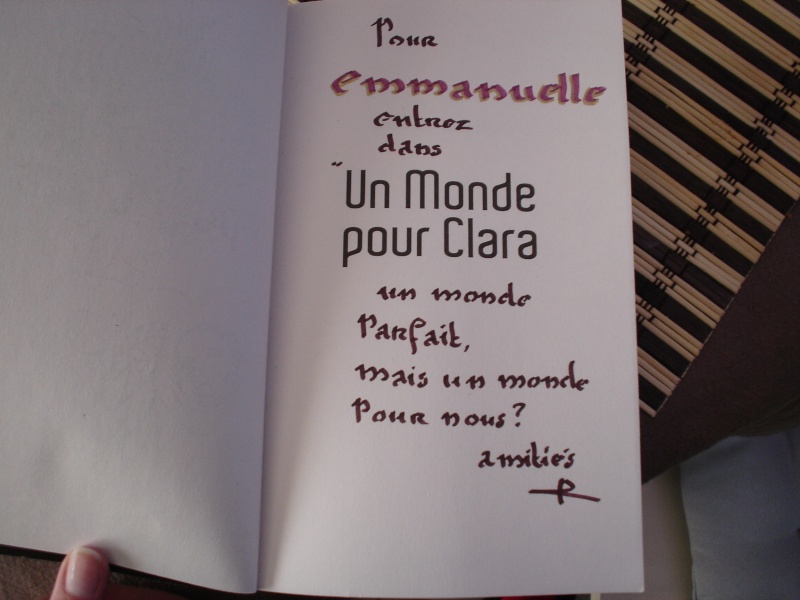 Pour
emmanuelle
entrez
dans
"Un Monde
pour Clara
un monde
Parfait,
mais un monde
Pour nous?
amitiés
R